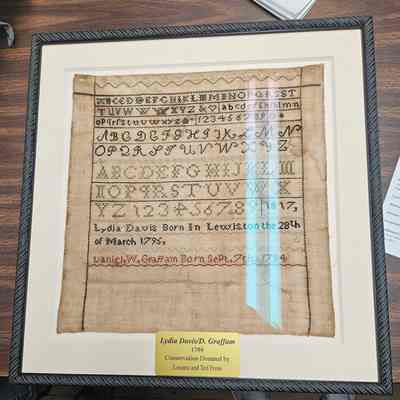 ABCDEFGHIKLMNOPQRST
TUVWXYZ& abcdefghiklmn
opqrfstuvwxyz 123456789
ABCDEFGHIJK,LMN
OPQRSTUVWXYZ
ABCDEFGHIKLM
NOPQRSTUVWX
YZ 123456789 1817,
Lydia Davis Born In Lewiston the 28th
of March 1795,
Daniel,W, Graffam Born Sept, 7th, 1794
Lydia Davis/D. Graffam
Conservation Donated by